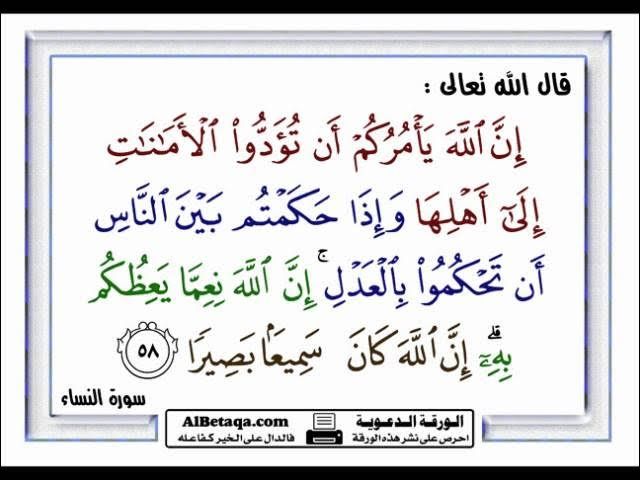 قال الله تعالى :
إِنَّ ٱللَّهَ يَأۡمُرُكُمۡ أَن تُؤَدُّواْ ٱلۡأَمَٰنَٰتِ
إِلَىٰٓ أَهۡلِهَا وَإِذَا حَكَمۡتُم بَيۡنَ ٱلنَّاسِ
أَن تَحۡكُمُواْ بِٱلۡعَدۡلِۚ إِنَّ ٱللَّهَ نِعِمَّا يَعِظُكُم
بِهِۦٓۗ إِنَّ ٱللَّهَ كَانَ سَمِيعَۢا بَصِيرٗا ٥٨
سورة النساء
الورقة الدعوية
احرص على نشر هذه الورقة
AlBetaqa.com
فالدال على الخير كفاعله